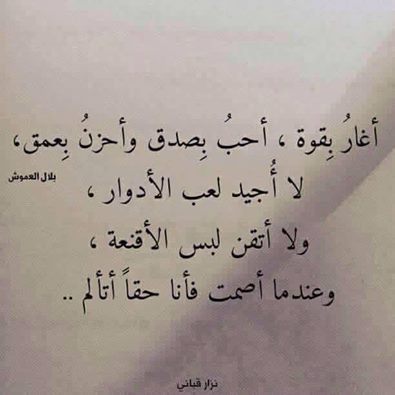 أغارُ بِقوة ، أحبُ بِصدق وأحزنُ بِعمق،
بلال العموش
لا أُجيد لعب الأدوار ،
ولا أتقن لبس الأقنعة ،
وعندما أصمت فأنا حقاً أتألم ..
نزار قباني